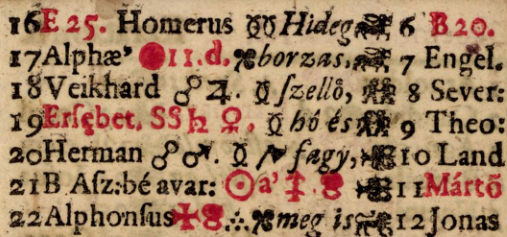 16 E 25. Homerus ☿☿ Hideg 6 B 20.
17 Alphæ' ●11.d. borzas, 7 Engel.
18 Veikhard ☍♃. ☿ ſzellő, 8 Sever:
19 Erſębet. SS♄ ♀. ☿ hó és 9 Theo:
20 Herman ☍♂. ☿ fagy, 10 Land
21 B Aſz:bé avar: ☉a' 11 Mártō
22 Alphonſus ✠ ∴ meg is 12 Jonas